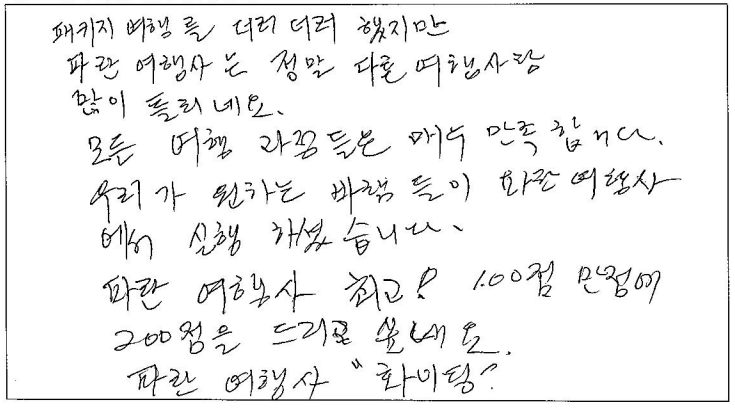 패키지 여행를 더러 더러 했지만
파란 여행사는 정말 다른 여행사랑
많이 틀리네요.
모든 여행 과정들은 매우 만족합니다.
우리가 원하는 바램들이 파란 여행사
에서 실행 하셨습니다.
파란 여행사 최고! 100점 만점에
200점을 드리고 싶네요.
파란 여행사 "화이팅!